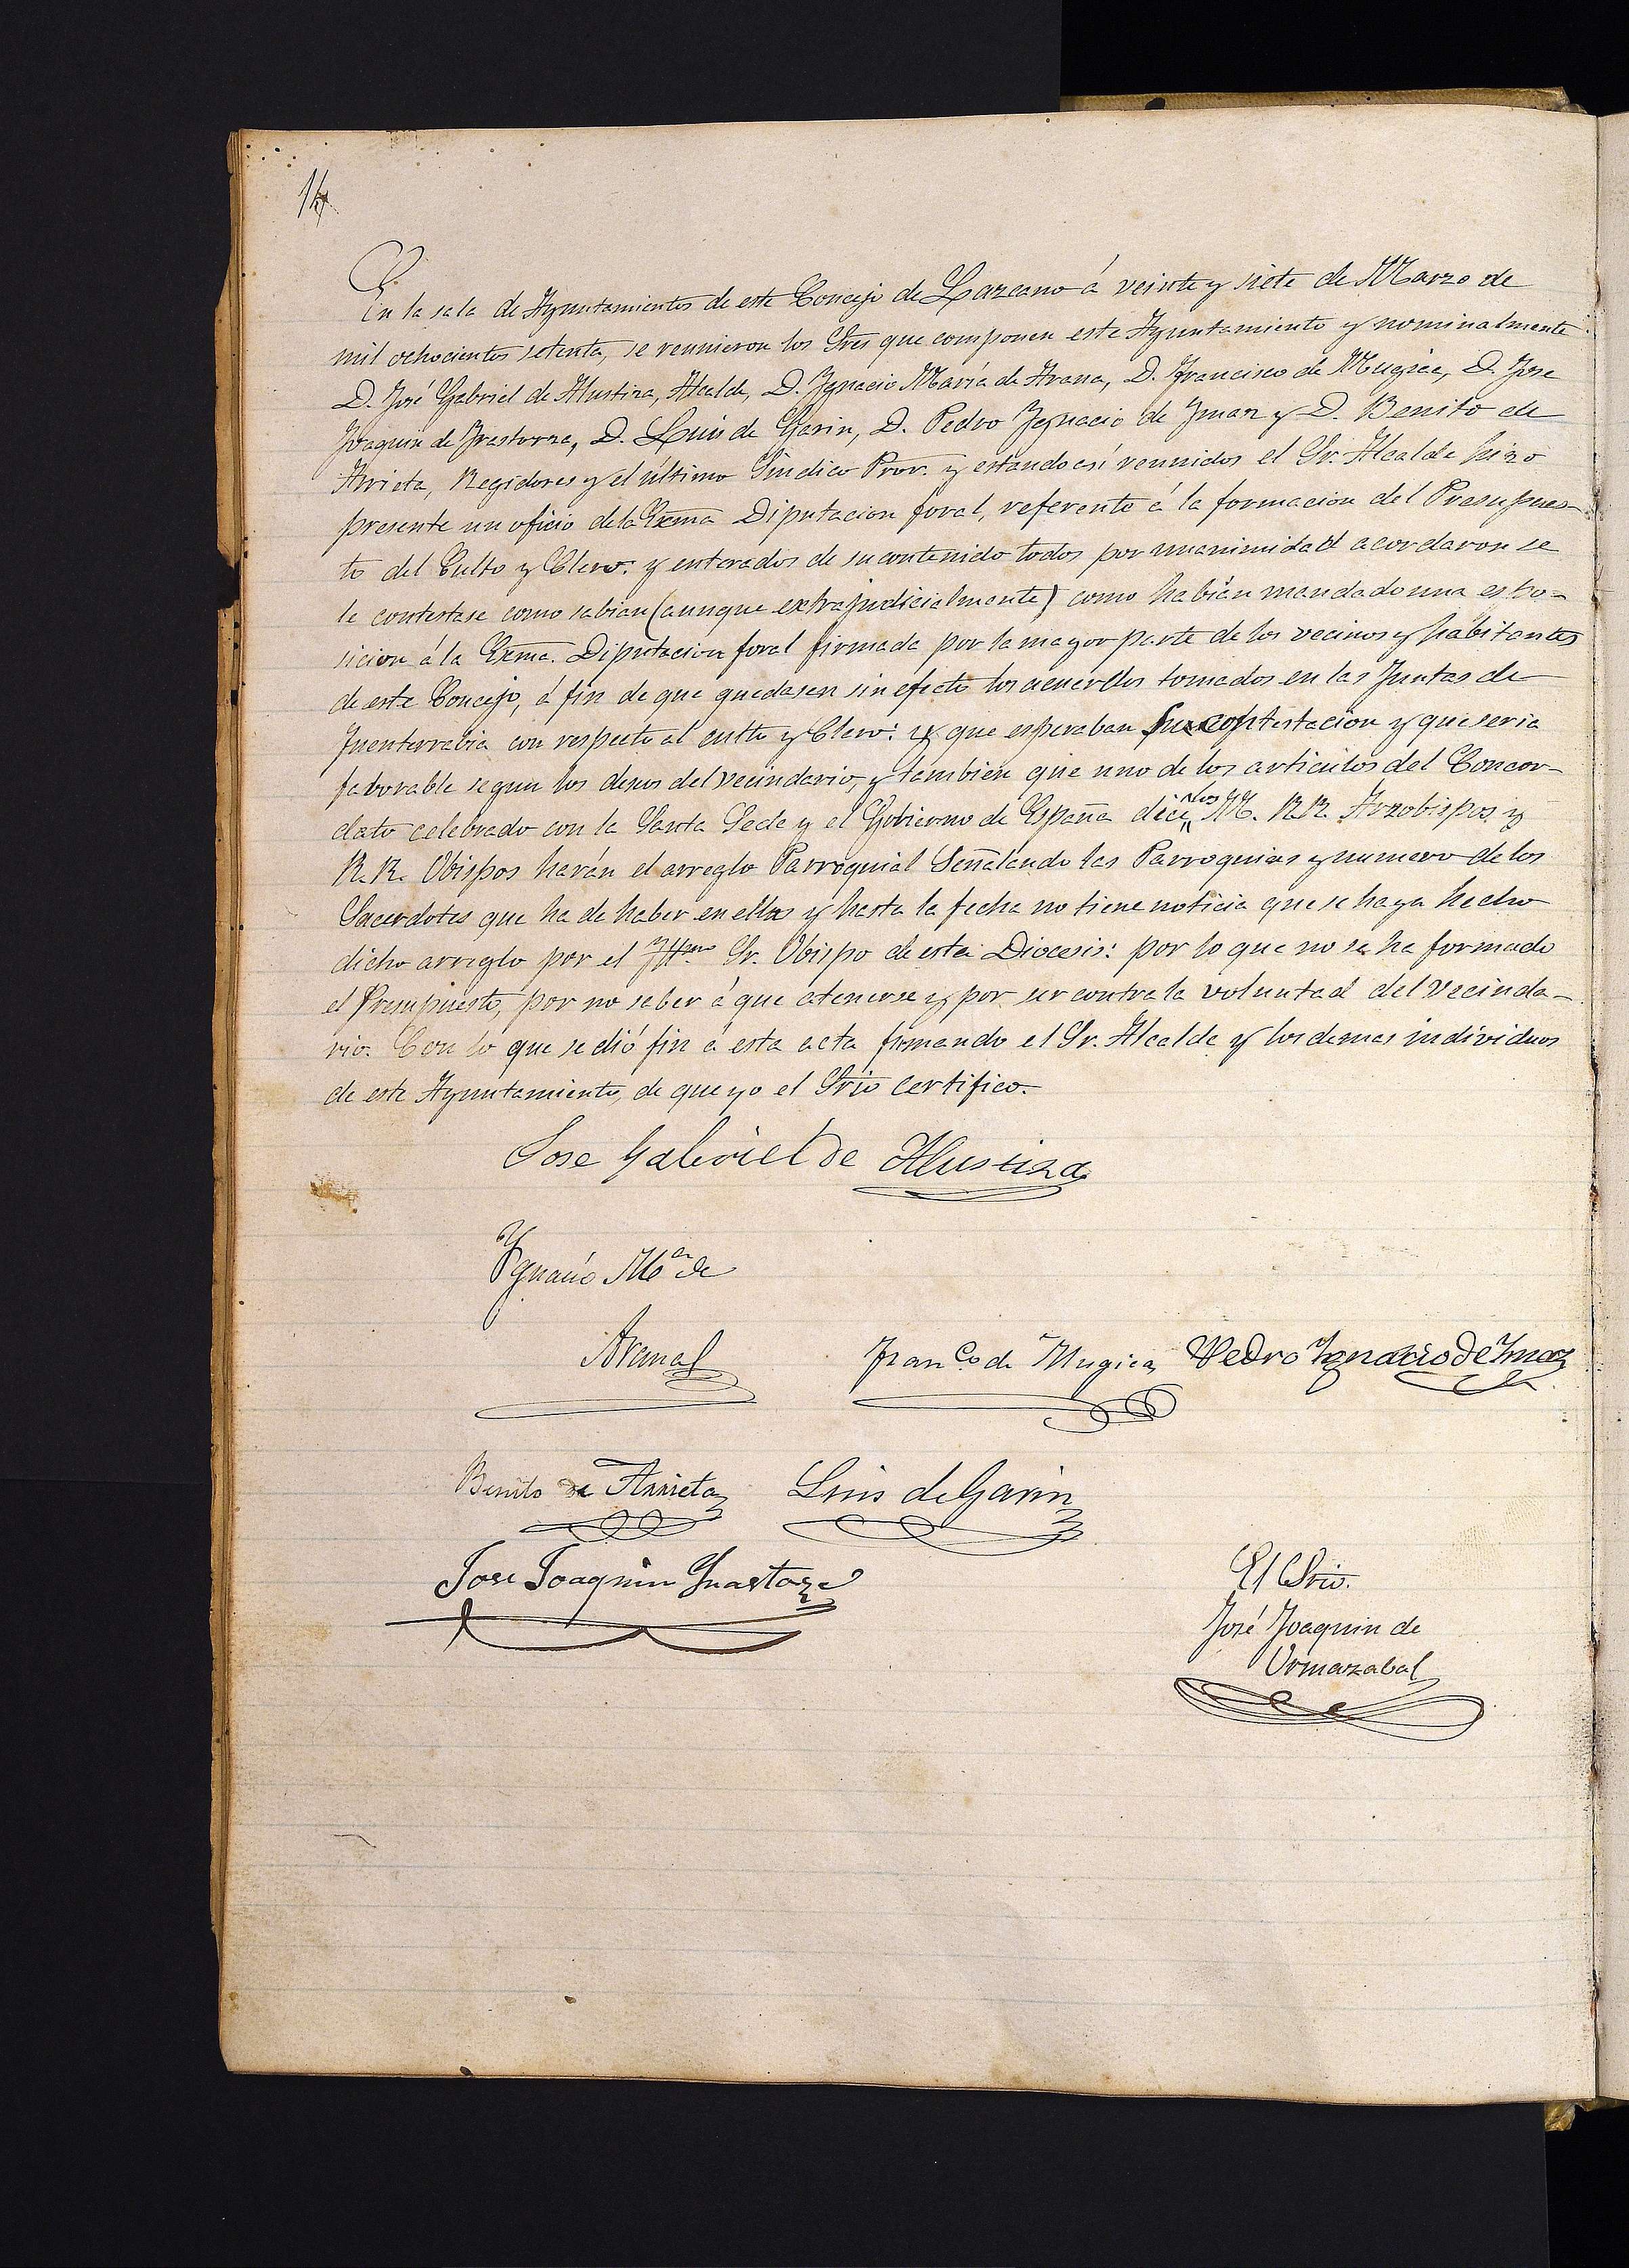 14
En la sala de Ayuntamientos de este Concejo de Lazcano á veinte y siete de Marzo de
mil ochocientos setenta, se reunieron los Sres que componen este Ayuntamiento y nominalmente
D. José Gabriel de Alustiza, Alcalde, D. Ygnacio María de Arana, D. Francisco de Mugica, D. Jose
Joaquin de Yrastorza, D. Luis de Garin, D. Pedro Ygnacio de Ymaz y D. Benito de
Arrieta, Regidores y el último Sindico Pror. y estando así reunidos el Sr. Alcalde hizo
presente un oficio de la Exma Diputacion foral, referente á la formacion del Presupues-
to del Culto y Clero: y enterados de su contenido todos por unanimidad acordaron se
le contestase como sabian (aunque extrajudicialmente) como habian mandado una espo-
sicion á la Exma. Diputacion foral firmada por la mayor parte de los vecinos y habitantes
de este Concejo, á fin de que quedasen sin efecto los acuerdos tomados en las Juntas de
Fuenterrabia con respecto al culto y Clero: y que esperaban su contestacion y que seria
faborable segun los deseos del vecindario, y tambien que uno de los articulos del Concor-
dato celebrado con la Santa Sede y el Gobierno de España dice, los M. R.R. Arzobispos y
R.R. Obispos harán el arreglo Parroquial Señalando las Parroquias y numero de los
Sacerdotes que ha de haber en ellas y hasta la fecha no tiene noticia que se haya hecho
dicho arreglo por el Yltmo Sr. Obispo de esta Diocesis: por lo que no se ha formado
el Presupuesto, por no saber á que atenerse y por ser contra la voluntad del vecinda-
rio. Con lo que se dió fin á esta acta firmando el Sr. Alcalde y los demas individuos
de este Ayuntamiento, de que yo el Srio certifico.
Jose Gabriel de Alustiza
Ygnacio Ma de
Arana
Franco de Mugica Pedro Ygnacio de Ymaz
Benito de Arrieta Luis de Garin
Jose Joaquin Yrastorza
El Srio.
José Joaquin de
Ormazabal